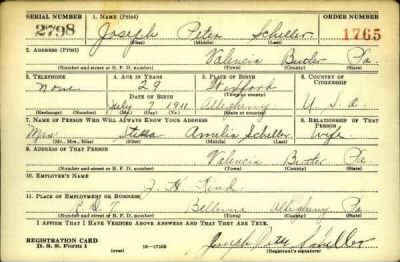 SERIAL NUMBER 1. NAME (Print) ORDER NUMBER
2798 Joseph Peter Scheller 1765
(First) (Middle) (Last)
2. ADDRESS (Print)
Valencia Butler Pa.
(Number and street or R. F. D. number) (Town) (County) (State)
3. TELEPHONE 4. AGE IN YEARS 5. PLACE OF BIRTH 6. COUNTRY OF CITIZENSHIP
None 29 Wexford
DATE OF BIRTH (Town or county)
July 7 1911 Allegheny U.S.A.
(Exchange) (Number) (Mo.) (Day) (Yr.) (State or country)
7. NAME OF PERSON WHO WILL ALWAYS KNOW YOUR ADDRESS 8. RELATIONSHIP OF THAT PERSON
Mrs Stella Amelia Scheller Wife
(Mr., Mrs., Miss) (First) (Middle) (Last)
9. ADDRESS OF THAT PERSON
Valencia Butler Pa.
(Number and street or R. F. D. number) (Town) (County) (State)
10. EMPLOYER'S NAME
J. H.
11. PLACE OF EMPLOYMENT OR BUSINESS
Bellevue Allegheny Pa.
(Number and street or R. F. D. number) (Town) (County) (State)
I AFFIRM THAT I HAVE VERIFIED ABOVE ANSWERS AND THAT THEY ARE TRUE.
REGISTRATION CARD
D. S. S. Form 1 (over) 16—17105 Joseph Peter Scheller
(Registrant's signature)